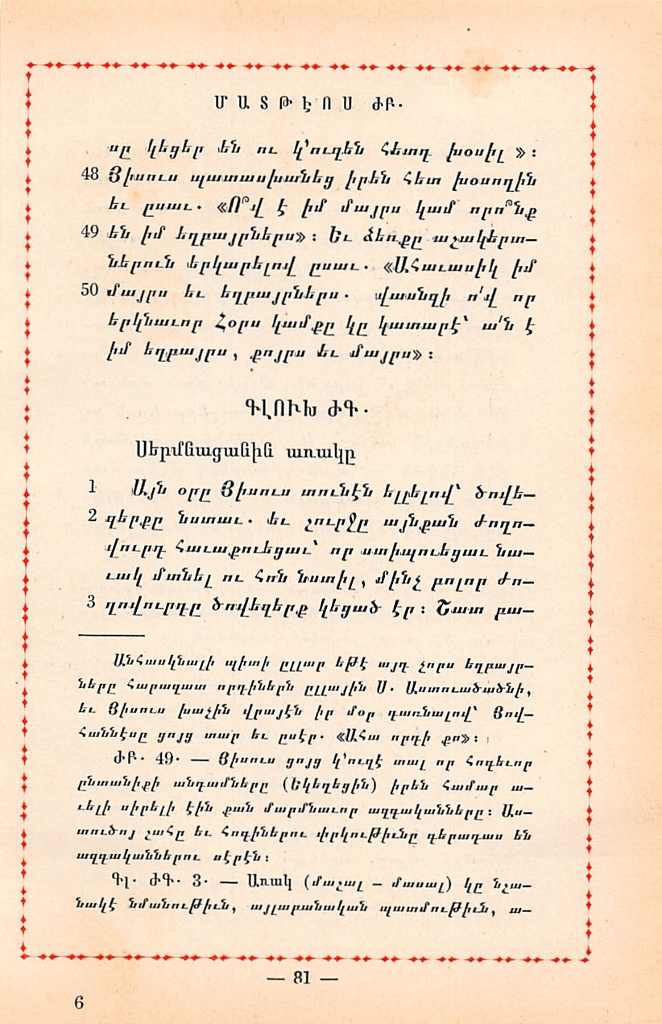 ՄԱՏԹԷՈՍ ԺԲ.
սը կեցեր են ու կ՚ուզեն հետդ խօսիլ»։
48 Յիսուս պատասխանեց իրեն հետ խօսողին
եւ ըսաւ. «Ո՞վ է իմ մայրս կամ որո՞նք
49 են իմ եղբայրներս»։ Եւ ձեռքը աշակերտ—
ներուն երկարելով ըսաւ. «Ահաւասիկ իմ
50 մայրս եւ եղբայրներս. վասնզի ո՛վ որ
երկնաւոր Հօրս կամքը կը կատարէ՝ ա՛ն է
իմ եղբայրս, քոյրս եւ մայրս»։
ԳԼՈՒԽ ԺԳ.
Սերմնացանին առակը
1 Այն օրը Յիսուս տունէն ելլելով՝ ծովե—
2 զերքը նստաւ. եւ շուրջը այնքան ժողո—
վուրդ հաւաքուեցաւ՝ որ ստիպուեցաւ նա—
ւակ մտնել ու հոն նստիլ, մինչ բոլոր ժո—
3 ղովուրդը ծովեզերք կեցած էր։ Շատ բա—
Անհասկնալի պիտի ըլլար եթէ այդ չորս եղբայր—
ները հարազատ որդիներն ըլլային Ս. Աստուածածնի,
եւ Յիսուս խաչին վրայէն իր մօր դառնալով՝ Յով—
հաննէսը ցոյց տար եւ ըսէր. «Ահա որդի քո»։
ԺԲ. 49. — Յիսուս ցոյց կ՚ուզէ տալ որ հոգեւոր
ընտանիքի անդամները (Եկեղեցին) իրեն համար ա—
ւելի սիրելի էին քան մարմնաւոր ազգականները։ Աս—
տուծոյ շահը եւ հոգիներու փրկութիւնը գերադաս են
ազգականներու սէրէն։
Գլ. ԺԳ. 3. — Առակ (մաշալ – մասալ) կը նշա—
նակէ նմանութիւն, այլաբանական պատմութիւն, ա—
— 81 —
6